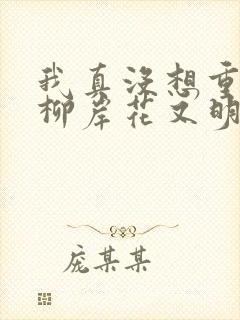 我真没想重
柳岸花又明
庞某某